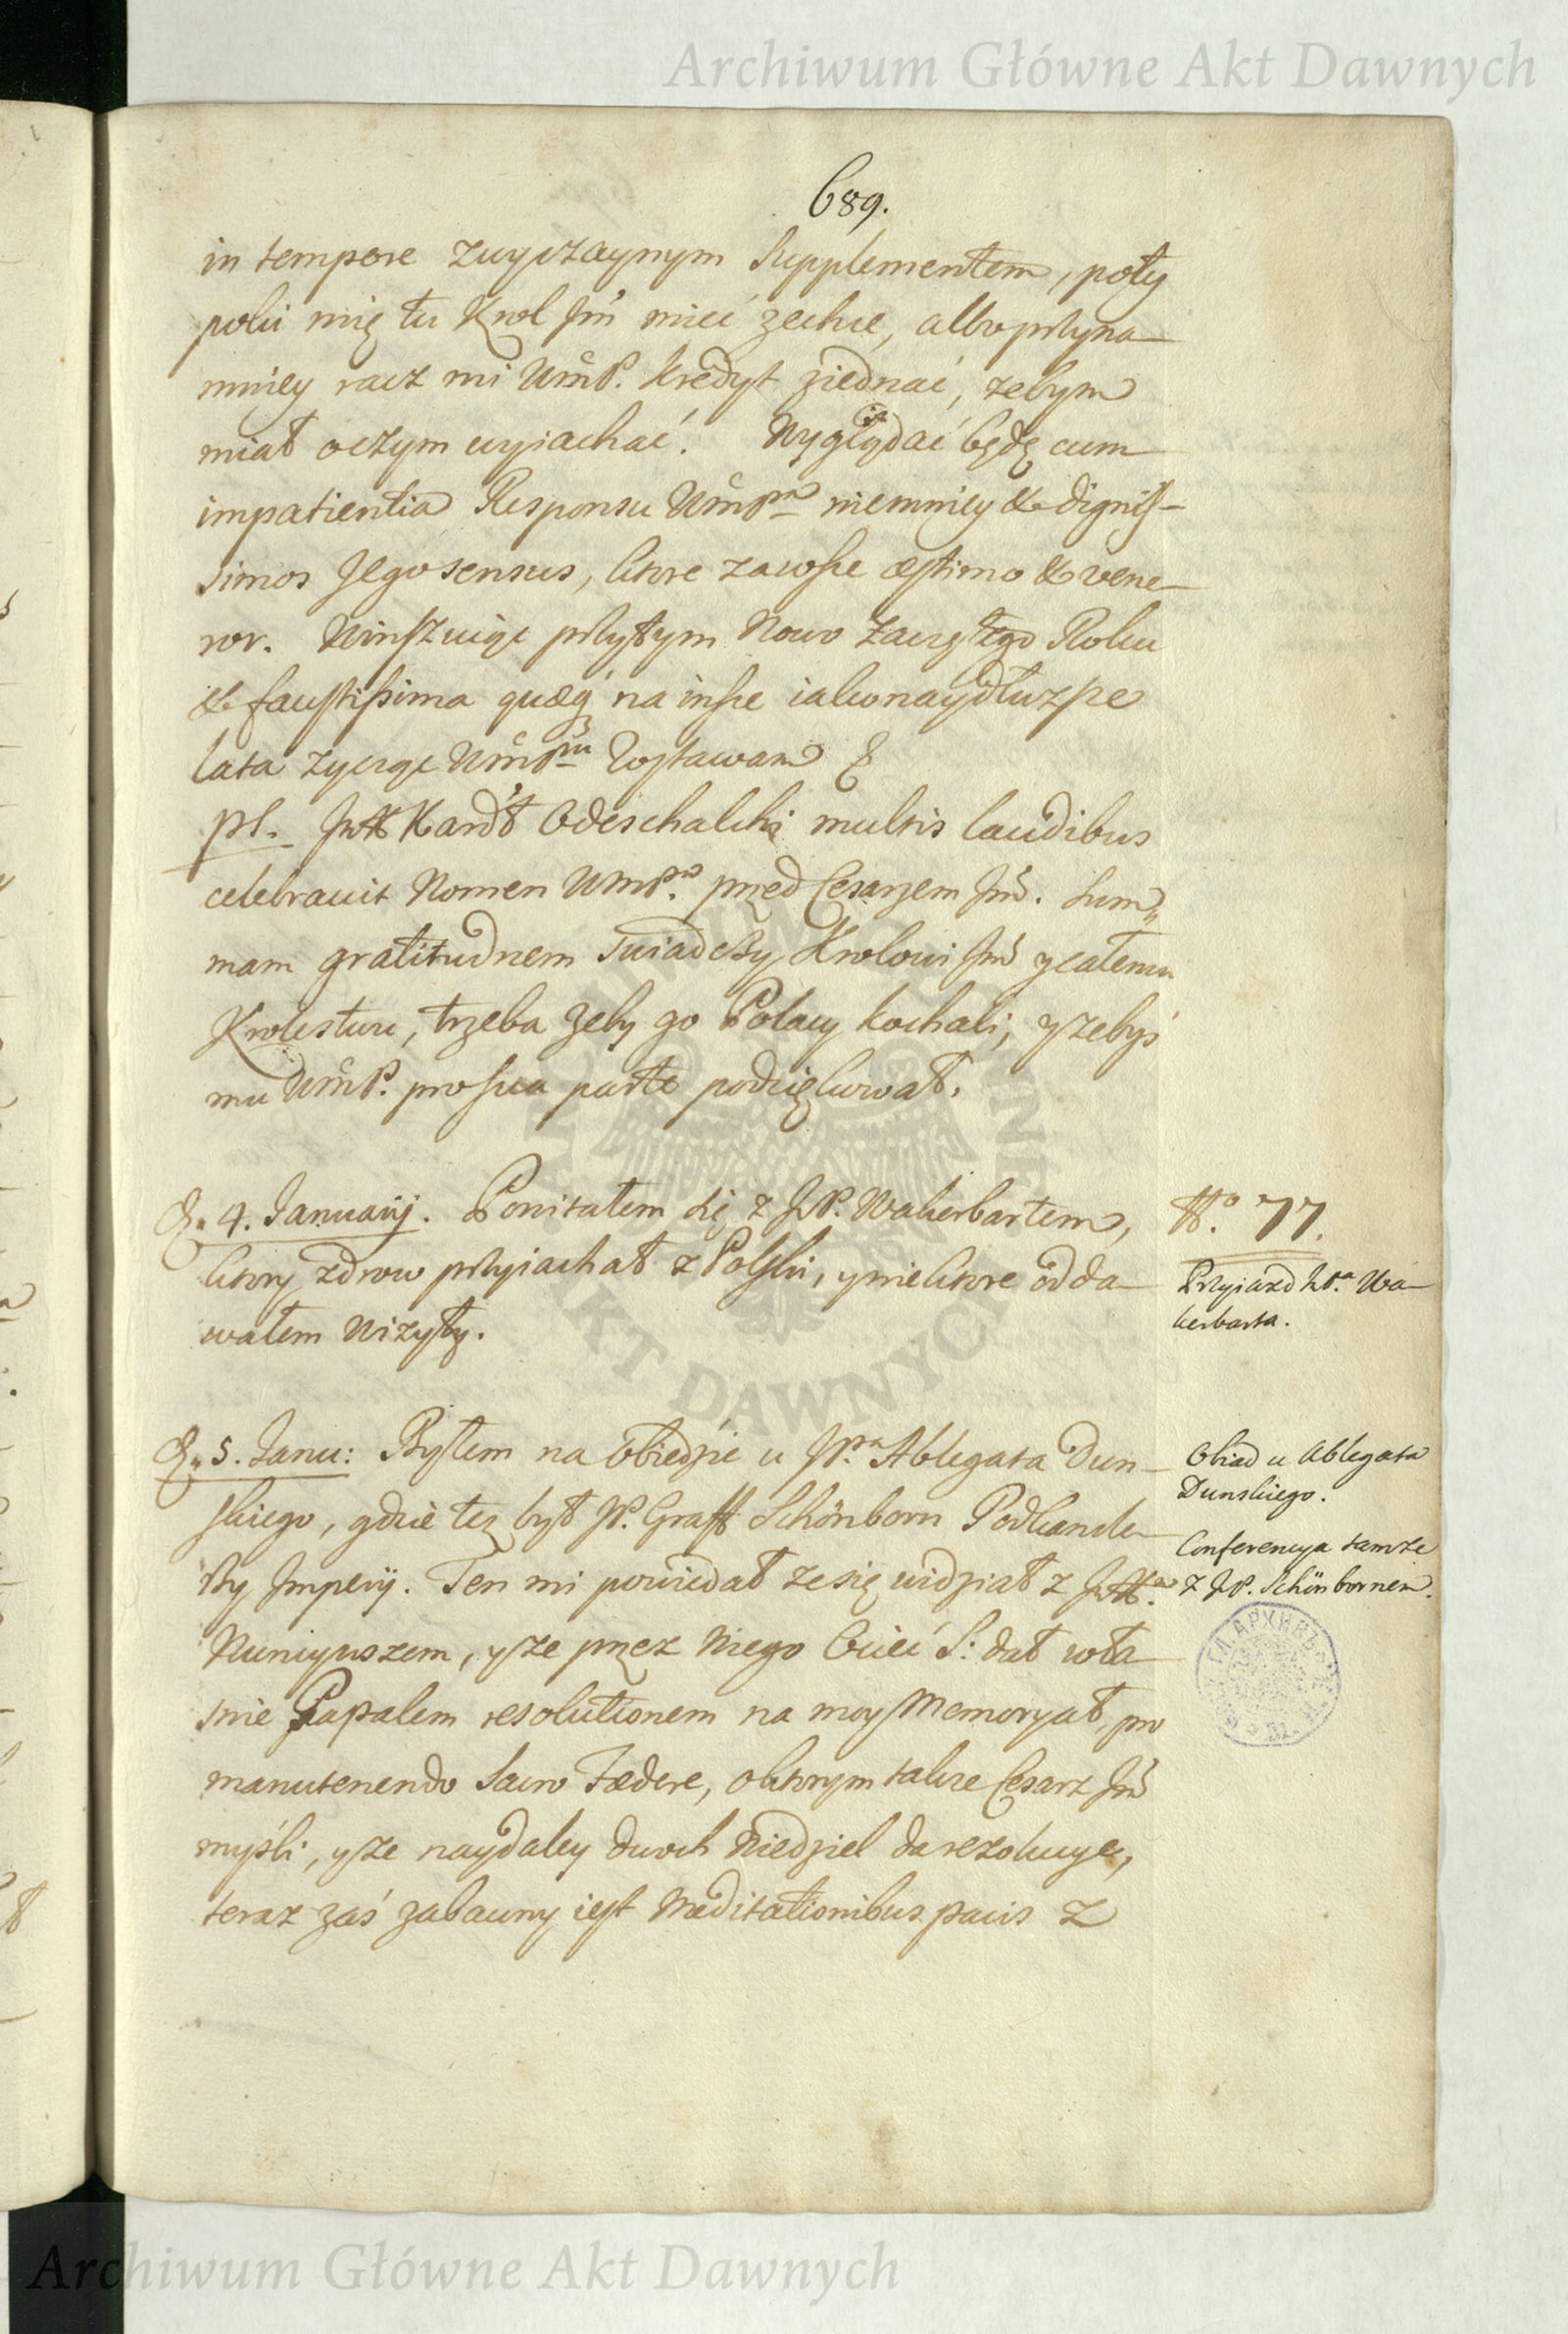 Archiwum Główne Akt Dawnych
689.
in tempore zwyczaynym Supplementem, poty
poki mię tu Krol Jm̃ mieć zechce, albo przyna-
mniey racz mi WmP. kredyt ziednać, zebym
miał oczym wyiachać. Wyglądać będę cum
impatientia Responsu WmPna niemniey & dignis-
simos Jego sensus, ktore zawsze æstimo & vene-
ror. Winszuiąc przytym Nowo Zaczętego Roku
& faustissima quæq́ na insze iakonaydłuzsze
lata zycząc WmPnu Zostawam &
PS. JmX Kardł Odeschalchi multis laudibus
celebravit Nomen WmPa przed Cesarzem Jm̃. Sum„
mam gratitudnem swiadczy Krolowi Jm̃ y całemu
Krolestwu, trzeba zeby go Polacy kochali, y zebyś
mu WmP. pro sua parte podziękował.
D„ 4. Januarij. Powitałem się z JP. Wakerbartem,
ktory zdrow przyiachał z Polski, y niektore odda-
wałem Wizyty.
No. 77.
Przyiazd JPa Wa-
kerbarta.
D„ 5. Janu: Byłem na Obiedzie u JPa Ablegata Dun-
skiego, gdzie tez był JP. Graff Schönborn Podkancle-
rzy Imperij. Ten mi powiedał ze się widział z JmX.
Nuncyuszem, y ze przez Niego Ociec S: dał wła-
snie Papalem resolutionem na moy Memoryał, pro
manutenendo Sacro Fædere, o ktorym takze Cesarz Jm̃
myśli, y ze naydaley dwoch Niedziel da rezolucye,
teraz zaś zabawny iest Meditationibus pacis z
Obiad u Ablegata
Dunskiego.
Conferencya tamze
z JP. Schönbornem.
Archiwum Główne Akt Dawnych